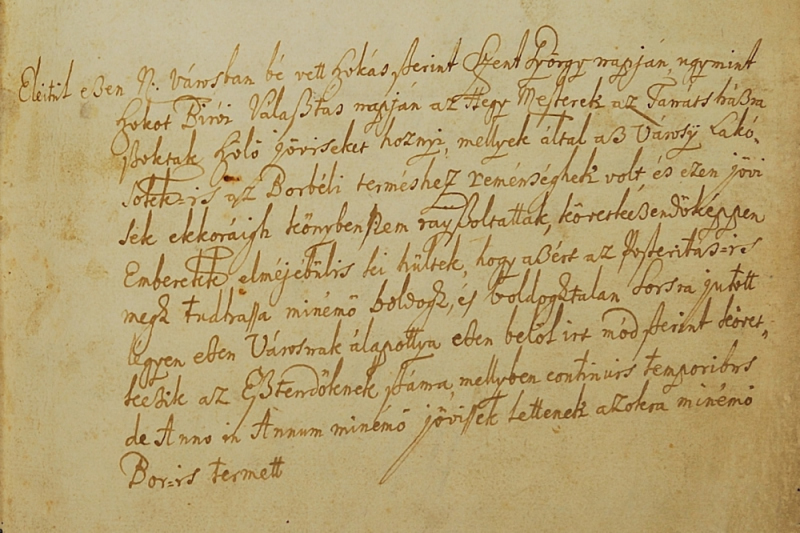 Eleitűl eßen N: Városban bé vett szokás szerint Szent György napján, ugymint
szokot Birói Valaßtas napján az Hegy Mesterek az Tanáts házra
ßoktak szőlő jövéseket hoznyi, mellyek által aß Városÿ Lakó,
sokk=is az Borbéli terméshez reménséghek volt, és ezen jövé
sek ekkoráigh könyben nem rayßoltattak, következendőképpen
Emberekk elméjébűlis ki hültek, hogy aßért az Posteritas=is
megh tudhassa minémő boldogh, és boldoghtalan sorsra jutott
légyen eßen Városnak álapottya eßen belől irt mód szerint követ,
kezik az Eßtendőknek száma, mellyben continuis temporibus
de Anno in Annum minémő jövéssek lettenek azokra minémő
Bor=is termett